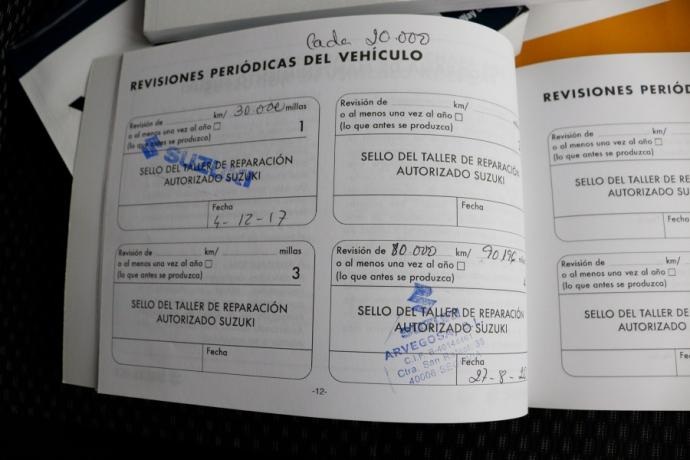 Cada 20.000
REVISIONES PERIÓDICAS DEL VEHÍCULO
Revisión de km/ 30.000 millas
o al menos una vez al año □ 1
(lo que antes se produzca)
SUZUKI
SELLO DEL TALLER DE REPARACIÓN
AUTORIZADO SUZUKI
Fecha
4-12-17
Revisión de km/
o al menos una vez al año □
(lo que antes se produzca)
SELLO DEL TALLER DE REPARACIÓN
AUTORIZADO SUZUKI
Fecha
Revisión de km/ millas
o al menos una vez al año □ 3
(lo que antes se produzca)
SELLO DEL TALLER DE REPARACIÓN
AUTORIZADO SUZUKI
Fecha
Revisión de 80.000 km/ 90.196
o al menos una vez al año □
(lo que antes se produzca)
SELLO DEL TALLER DE REPARACIÓN
AUTORIZADO SUZUKI
ARVEGOSA
C.I.F.
Ctra. San
40006 SEGOVIA
Fecha
27-8-20
-12-
REVISIONES PERIÓD
Revisión de km/
o al menos una vez al año □
(lo que antes se produzca)
SELLO DEL TALLER DE RE
AUTORIZADO SU
Fecha
Revisión de km/
o al menos una vez al año □
(lo que antes se produzca)
SELLO DEL TALLER DE
AUTORIZADO
Fecha